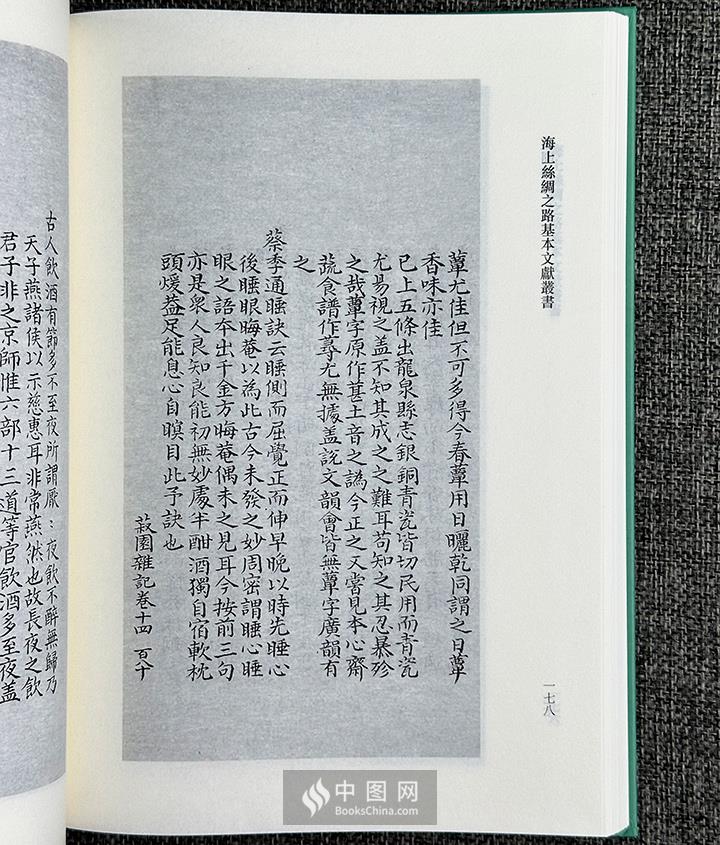 海上絲綢之路基本文獻叢書
一七八
蕈尤佳但不可多得今春蕈用日曬乾同謂之日蕈
香味亦佳
已上五條出龍泉縣志銀銅青瓷皆切民用而青瓷
尤易視之盖不知其成之之難耳苟知之其忍暴殄
之哉蕈字原作葚土音之譌今正之又嘗見本心齋
蔬食譜作蕁尤無據盖說文韻會皆無蕈字廣韻有
之
蔡季通睡訣云睡側而屈覺正而伸早晚以時先睡心
後睡眼晦菴以為此古今未發之妙周密謂睡心睡
眼之語本出千金方晦菴偶未之見耳今按前三句
亦是衆人良知良能初無妙處半酣酒獨自宿軟枕
頭煖蓋足能息心自瞑目此予訣也
菽園雜記卷十四 百六十
古人飲酒有節多不至夜所謂厭：夜飲不醉無歸乃
天子燕諸侯以示慈惠耳非常燕然也故長夜之飲
君子非之京師惟六部十三道等官飲酒多至夜盖
中图网
BooksChina.com